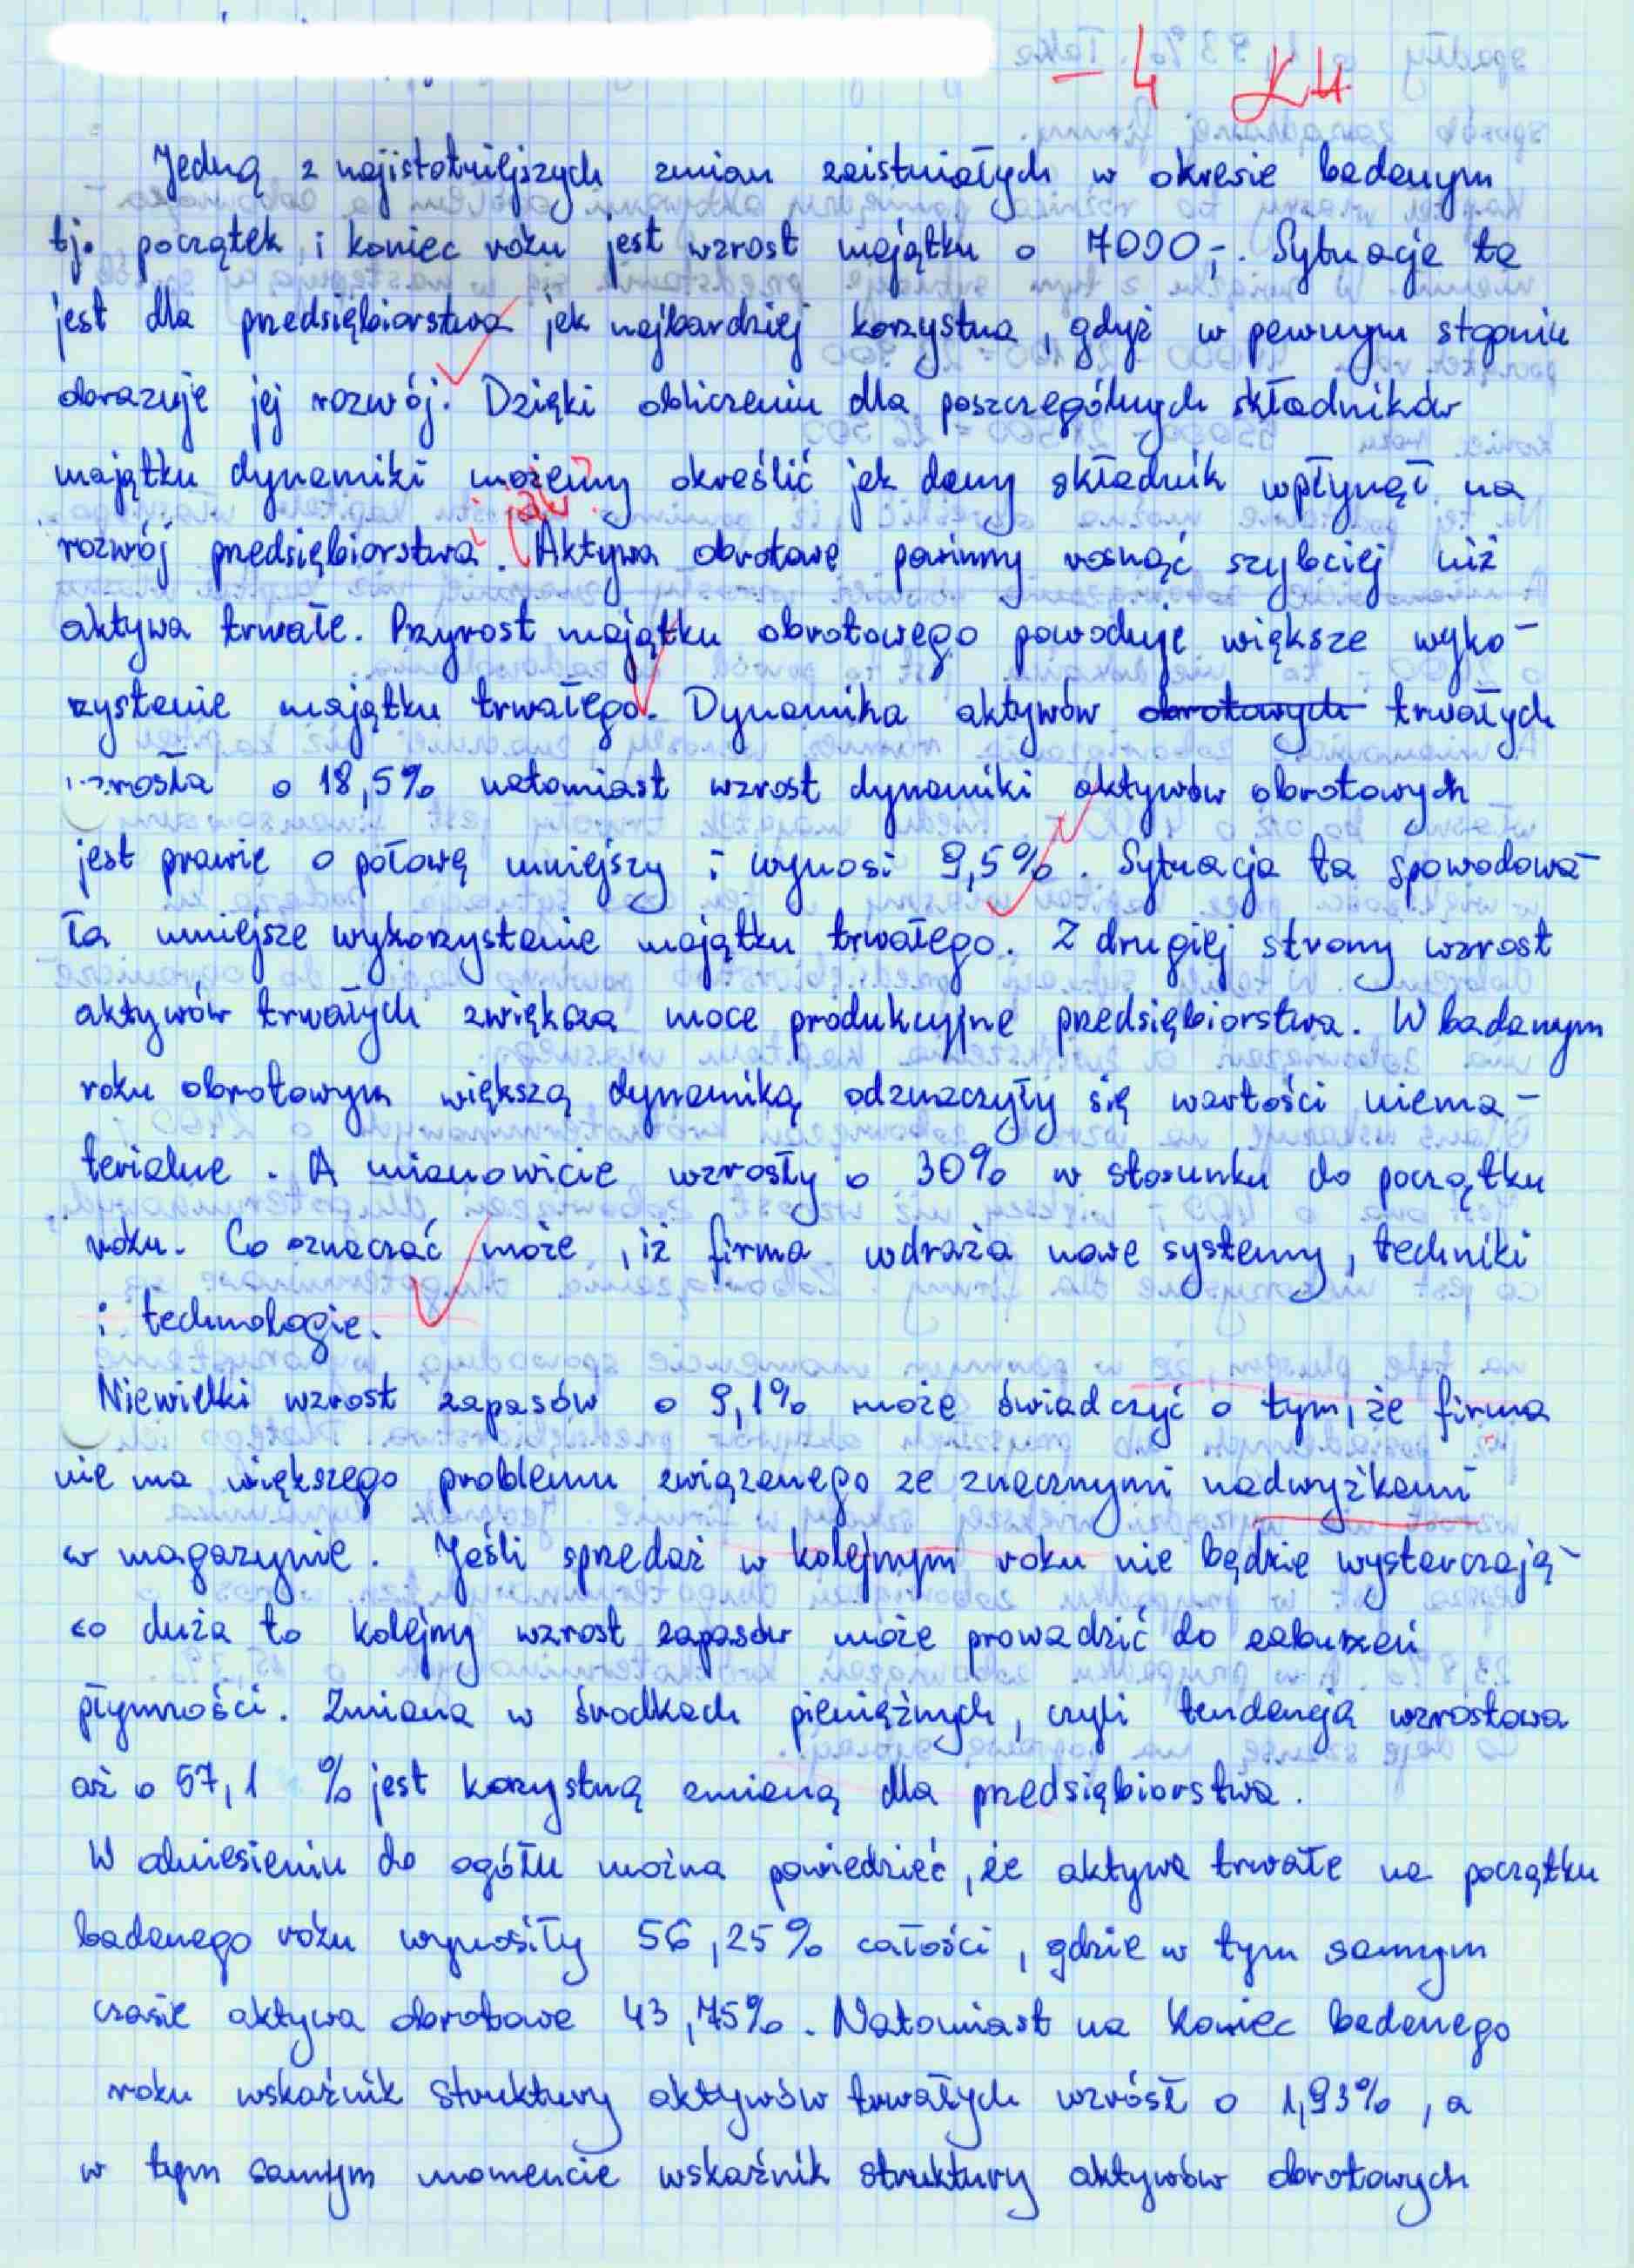 - 4
Jedną z najistotniejszych zmian zaistniałych w okresie badanym
tj. początek i koniec roku jest wzrost majątku o 7000,-. Sytuacja ta
jest dla przedsiębiorstwa jak najbardziej korzystna, gdyż w pewnym stopniu
obrazuje jej rozwój. Dzięki obliczeniu dla poszczególnych składników
majątku dynamiki możemy określić jak dany składnik wpłynął na
jak?
rozwój przedsiębiorstwa. Aktywa obrotowe powinny rosnąć szybciej niż
aktywa trwałe. Przyrost majątku obrotowego powoduje większe wyko-
rzystanie majątku trwałego. Dynamika aktywów obrotowych trwałych
wzrosła o 18,5% natomiast wzrost dynamiki aktywów obrotowych
jest prawie o połowę mniejszy i wynosi 9,5%. Sytuacja ta spowodowa-
ła mniejsze wykorzystanie majątku trwałego. Z drugiej strony wzrost
aktywów trwałych zwiększa moce produkcyjne przedsiębiorstwa. W badanym
roku obrotowym większą dynamiką odznaczyły się wartości niema-
terialne. A mianowicie wzrosły o 30% w stosunku do początku
roku. Co oznaczać może, iż firma wdraża nowe systemy, techniki
i technologie.
Niewielki wzrost zapasów o 9,1% może świadczyć o tym, że firma
nie ma większego problemu związanego ze znacznymi nadwyżkami
w magazynie. Jeśli sprzedaż w kolejnym roku nie będzie wystarczają-
co duża to kolejny wzrost zapasów może prowadzić do zaburzeń
płynności. Zmiana w środkach pieniężnych, czyli tendencja wzrostowa
aż o 57,1 % jest korzystną zmianą dla przedsiębiorstwa.
W odniesieniu do ogółu można powiedzieć, że aktywa trwałe na początku
badanego roku wynosiły 56,25% całości, gdzie w tym samym
czasie aktywa obrotowe 43,75%. Natomiast na koniec badanego
roku wskaźnik struktury aktywów trwałych wzrósł o 1,93%, a
w tym samym momencie wskaźnik struktury aktywów obrotowych